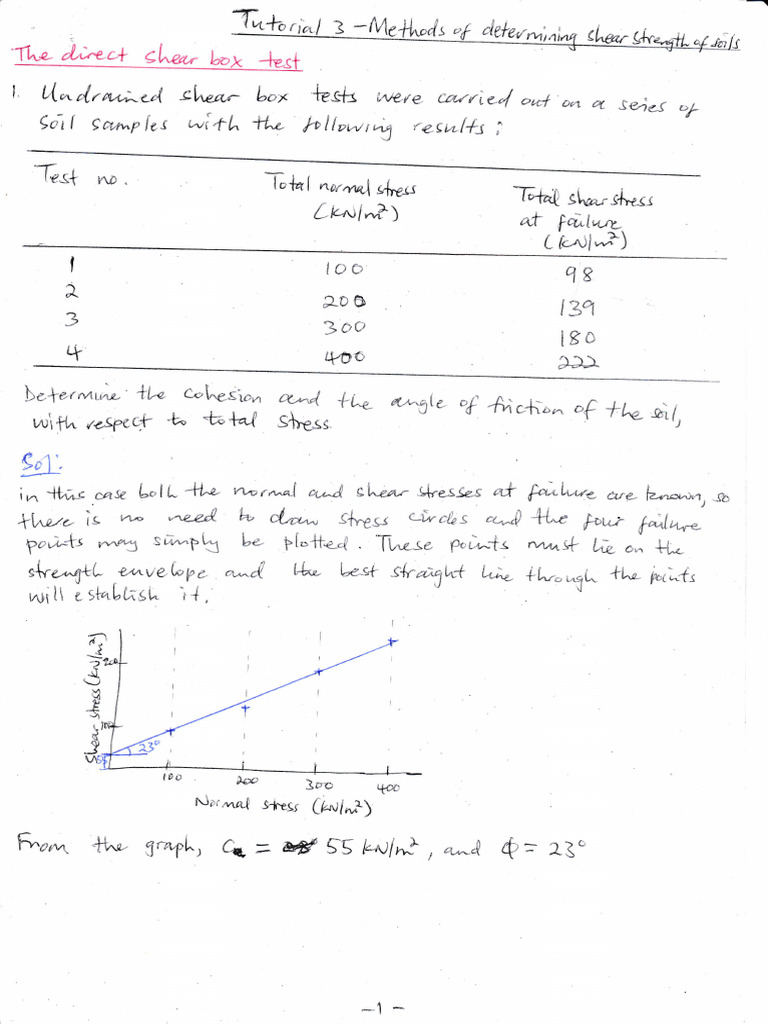 Tutorial 3 - Methods of determining shear strength of soils
The direct shear box test
1. Undrained shear box tests were carried out on a series of
soil samples with the following results:
Test no. Total normal stress (kN/m²) Total shear stress at failure (kN/m²)
1 100 98
2 200 139
3 300 180
4 400 222
Determine the cohesion and the angle of friction of the soil,
with respect to total stress.
Sol:
in this case both the normal and shear stresses at failure are known, so
there is no need to draw stress circles and the four failure
points may simply be plotted. These points must lie on the
strength envelope and the best straight line through the points
will establish it.
Shear stress (kN/m²)
200
100
55
23°
100 200 300 400
Normal stress (kN/m²)
From the graph, C = 55 kN/m², and Φ = 23°
-1-